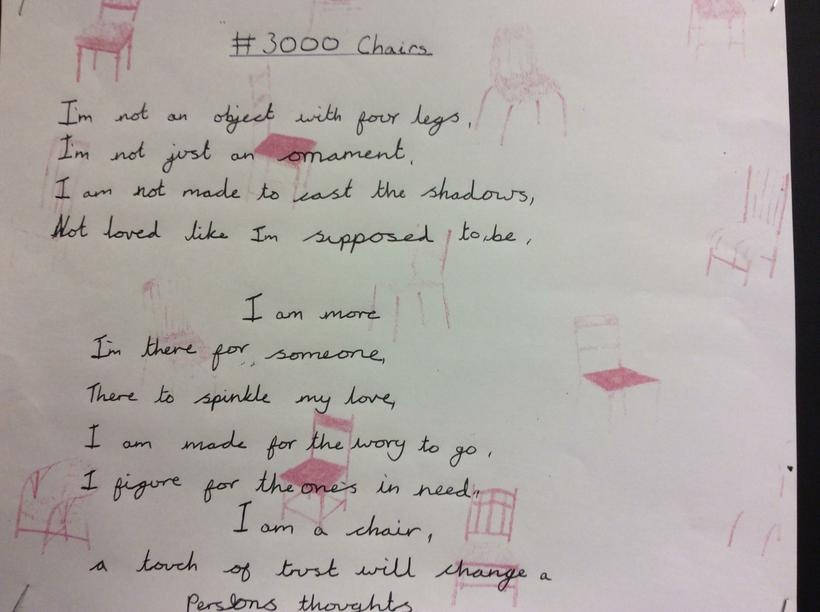 #3000 Chairs
I'm not an object with four legs,
I'm not just an ornament,
I am not made to cast the shadows,
Not loved like Im supposed to be,
I am more
I'm there for someone,
There to spinkle my love,
I am made for the wory to go,
I figure for the one's in need,
I am a chair,
a touch of trust will change a
Persons thoughts